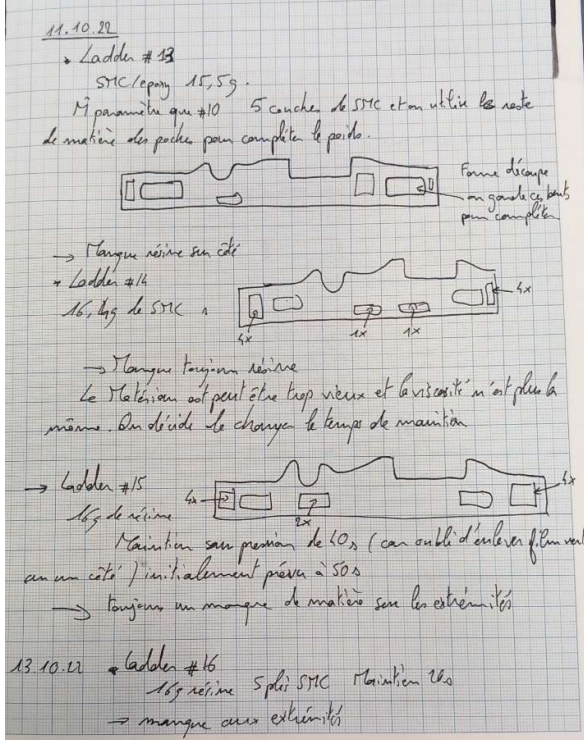 11.10.22
• Ladder #13
SMC/epoxy 15,5g.
M̂ paramètre que #10 5 couches de SMC et on utilise le reste
de matière des poches pour compléter le poids.
Forme découpe
on garde ces bouts
pour compléter
→ Manque résine sur côté
• Ladder #14
16, g de SMC
4x
4x
1x
1x
→ Manque toujours résine
Le Matériau est peut être trop vieux et la viscosité n'est plus la
même. On décide de changer le temps de maintien
→ Ladder #15
16g de résine
4x
2x
4x
Maintien sans pression de 40s (car oublié d'enlever film vert
sur un côté) initialement prévu à 50s
→ toujours un manque de matière sur les extrémités
13.10.22 • Ladder #16
16g résine 5 plis SMC Maintien
→ manque aux extrémités